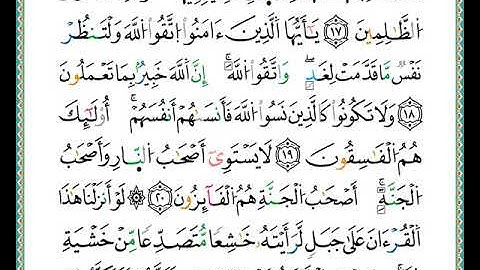 ٱلظَّٰلِمِينَ ١٧ يَٰٓأَيُّهَا ٱلَّذِينَ ءَامَنُوا۟ ٱتَّقُوا۟ ٱللَّهَ وَلْتَنظُرْ
نَفْسٌ مَّا قَدَّمَتْ لِغَدٍ ۖ وَٱتَّقُوا۟ ٱللَّهَ ۚ إِنَّ ٱللَّهَ خَبِيرٌۢ بِمَا تَعْمَلُونَ
١٨ وَلَا تَكُونُوا۟ كَٱلَّذِينَ نَسُوا۟ ٱللَّهَ فَأَنسَىٰهُمْ أَنفُسَهُمْ ۚ أُو۟لَٰٓئِكَ
هُمُ ٱلْفَٰسِقُونَ ١٩ لَا يَسْتَوِىٓ أَصْحَٰبُ ٱلنَّارِ وَأَصْحَٰبُ
ٱلْجَنَّةِ ۚ أَصْحَٰبُ ٱلْجَنَّةِ هُمُ ٱلْفَآئِزُونَ ٢٠ لَوْ أَنزَلْنَا هَٰذَا
ٱلْقُرْءَانَ عَلَىٰ جَبَلٍ لَّرَأَيْتَهُۥ خَٰشِعًا مُّتَصَدِّعًا مِّنْ خَشْيَةِ